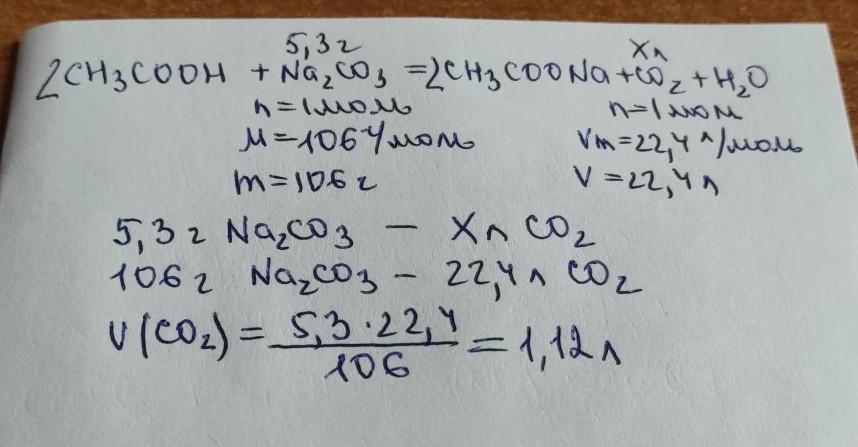 5,3г Xл
2CH3COOH + Na2CO3 = 2CH3COONa + CO2 + H2O
n=1моль n=1мол
M=106г/моль Vm=22,4 л/моль
m=106г V=22,4л
5,3г Na2CO3 – Xл CO2
106г Na2CO3 – 22,4л CO2
V(CO2) = 5,3·22,4 / 106 = 1,12л